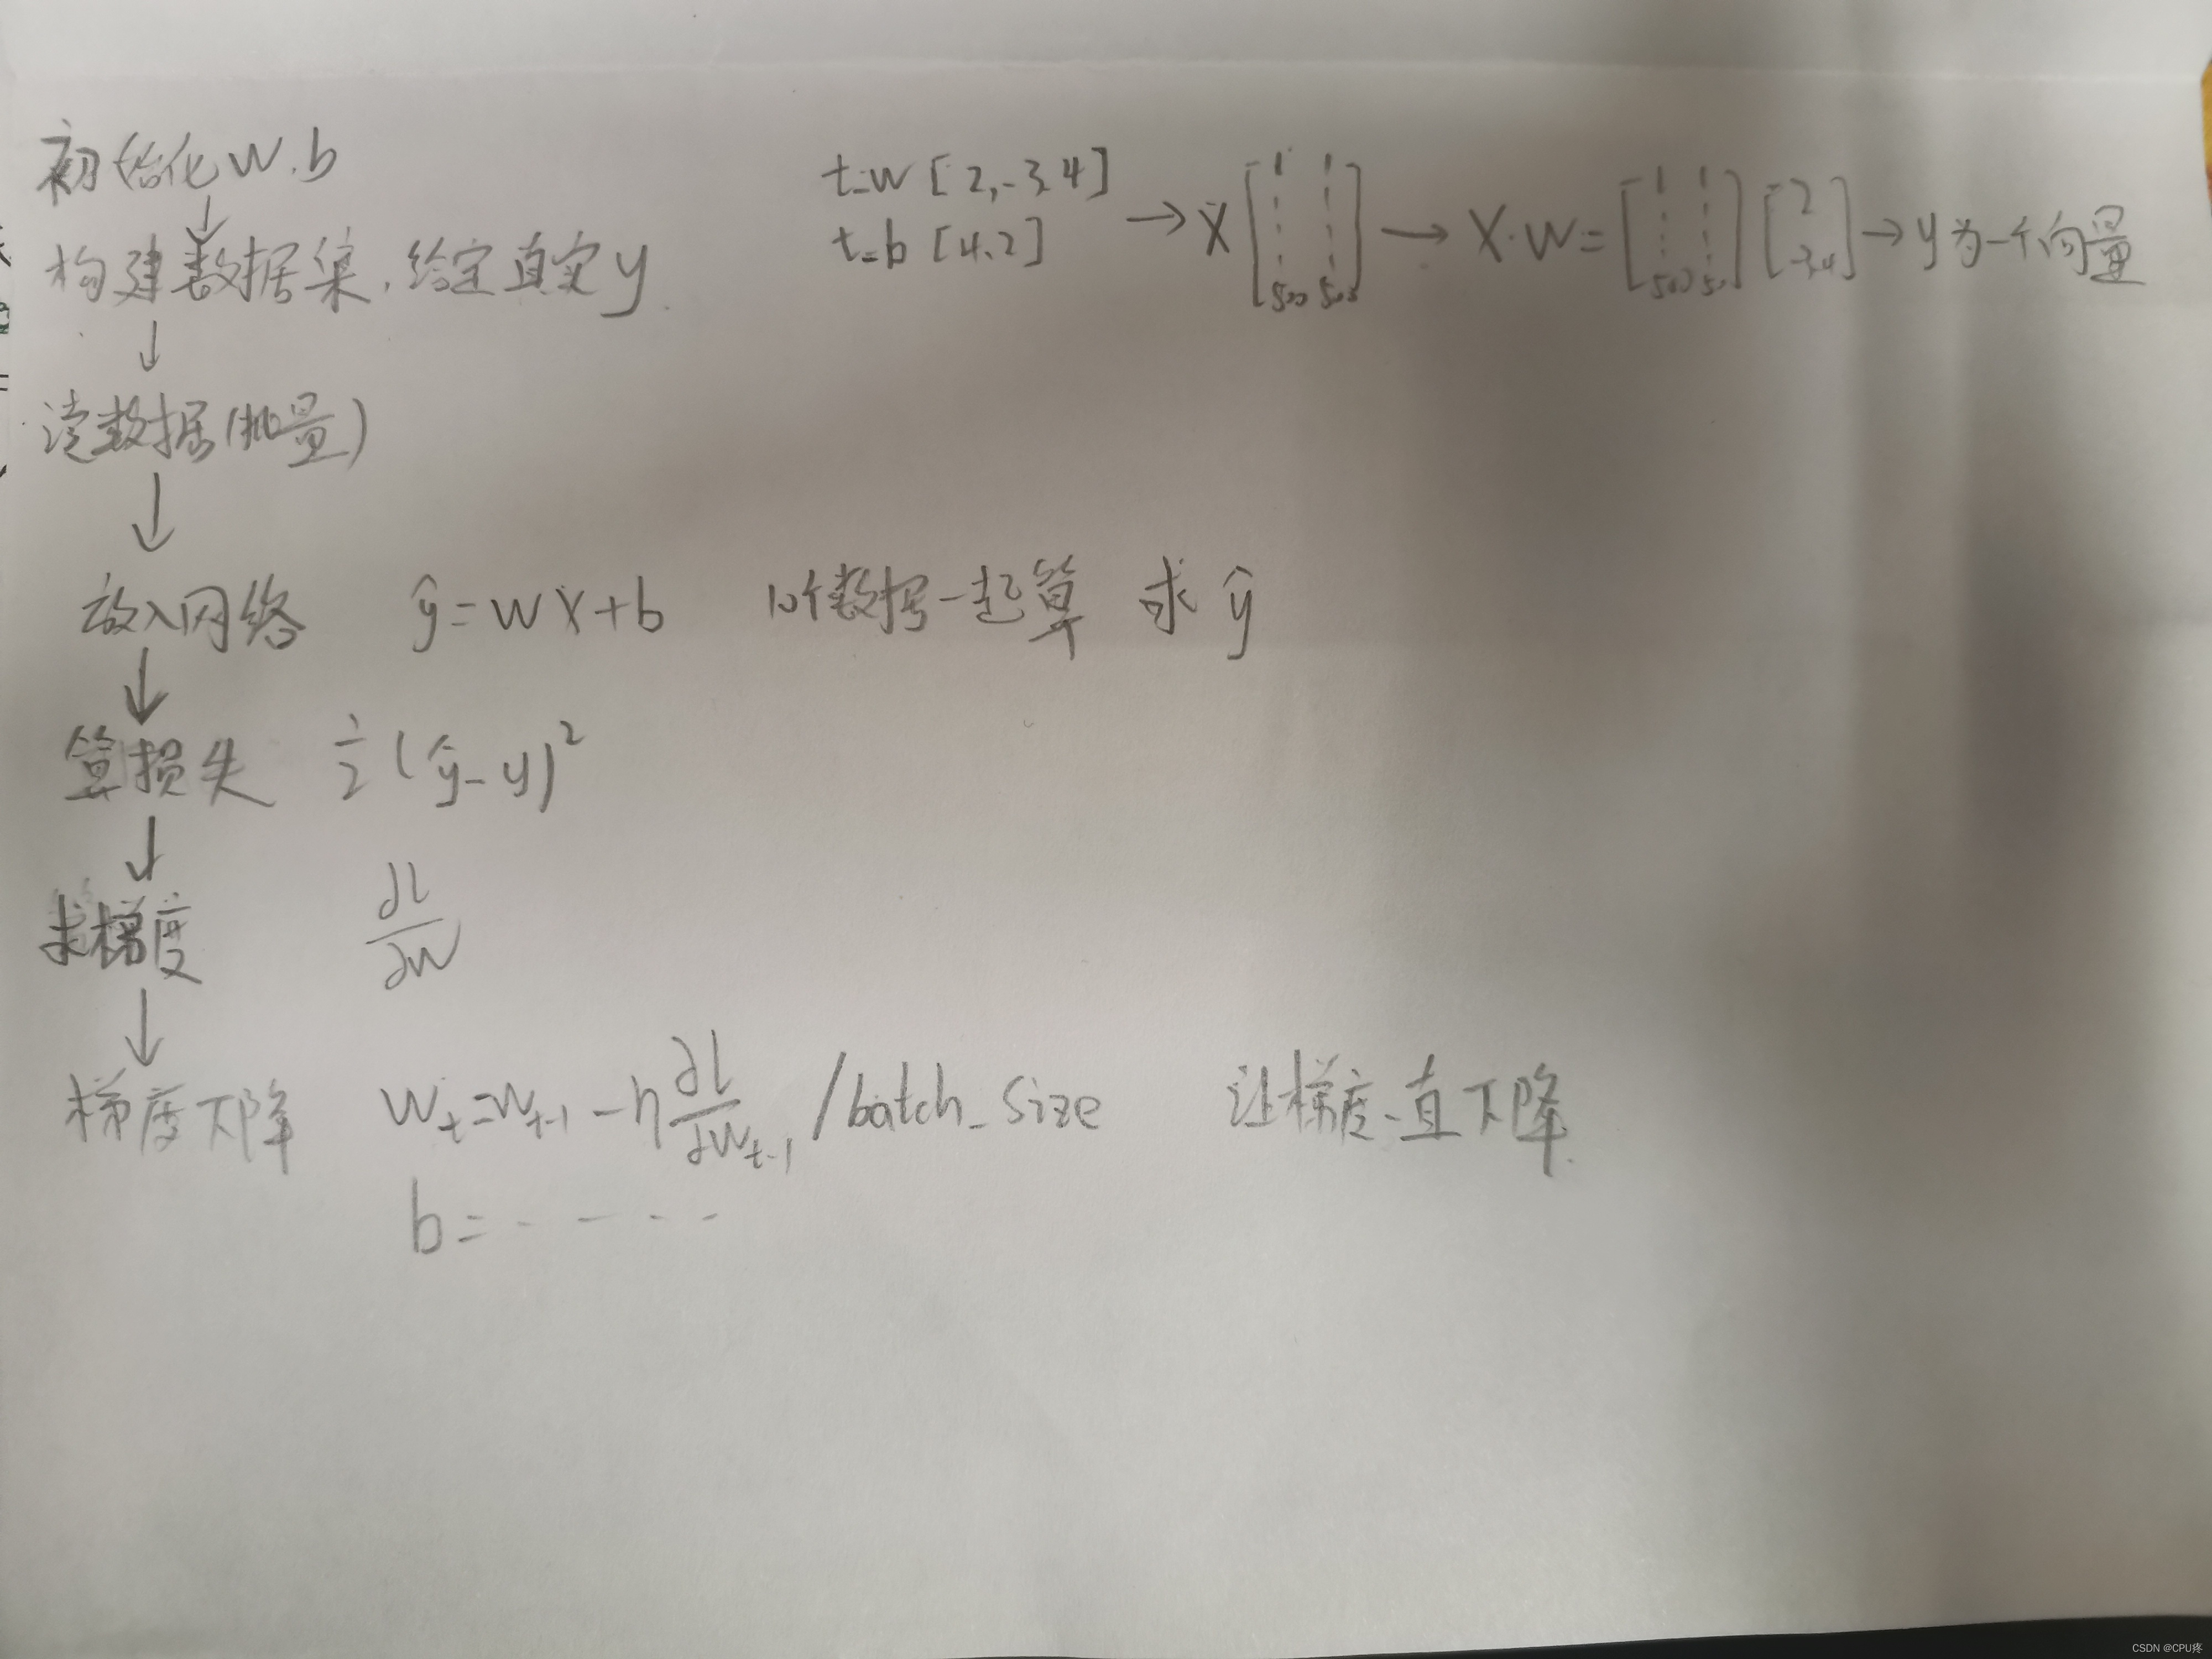 初始化 w.b
t_w [2,-3.4]
t_b [4.2]
→ X [1 1 500 500] → X·W = [1 1 500 500] [2 -3.4] → y为一个向量
↓
构建数据集,给定真实y
↓
读数据(批量)
↓
放入网络 ŷ=wX+b 10个数据一起算 求ŷ
↓
算损失 1/2 (ŷ-y)²
↓
求梯度 ∂l/∂w
↓
梯度下降 w_t=w_t-1 - η ∂l/∂w_t-1 /batch_size 让梯度一直下降.
b=- - - -
CSDN @CPU疼